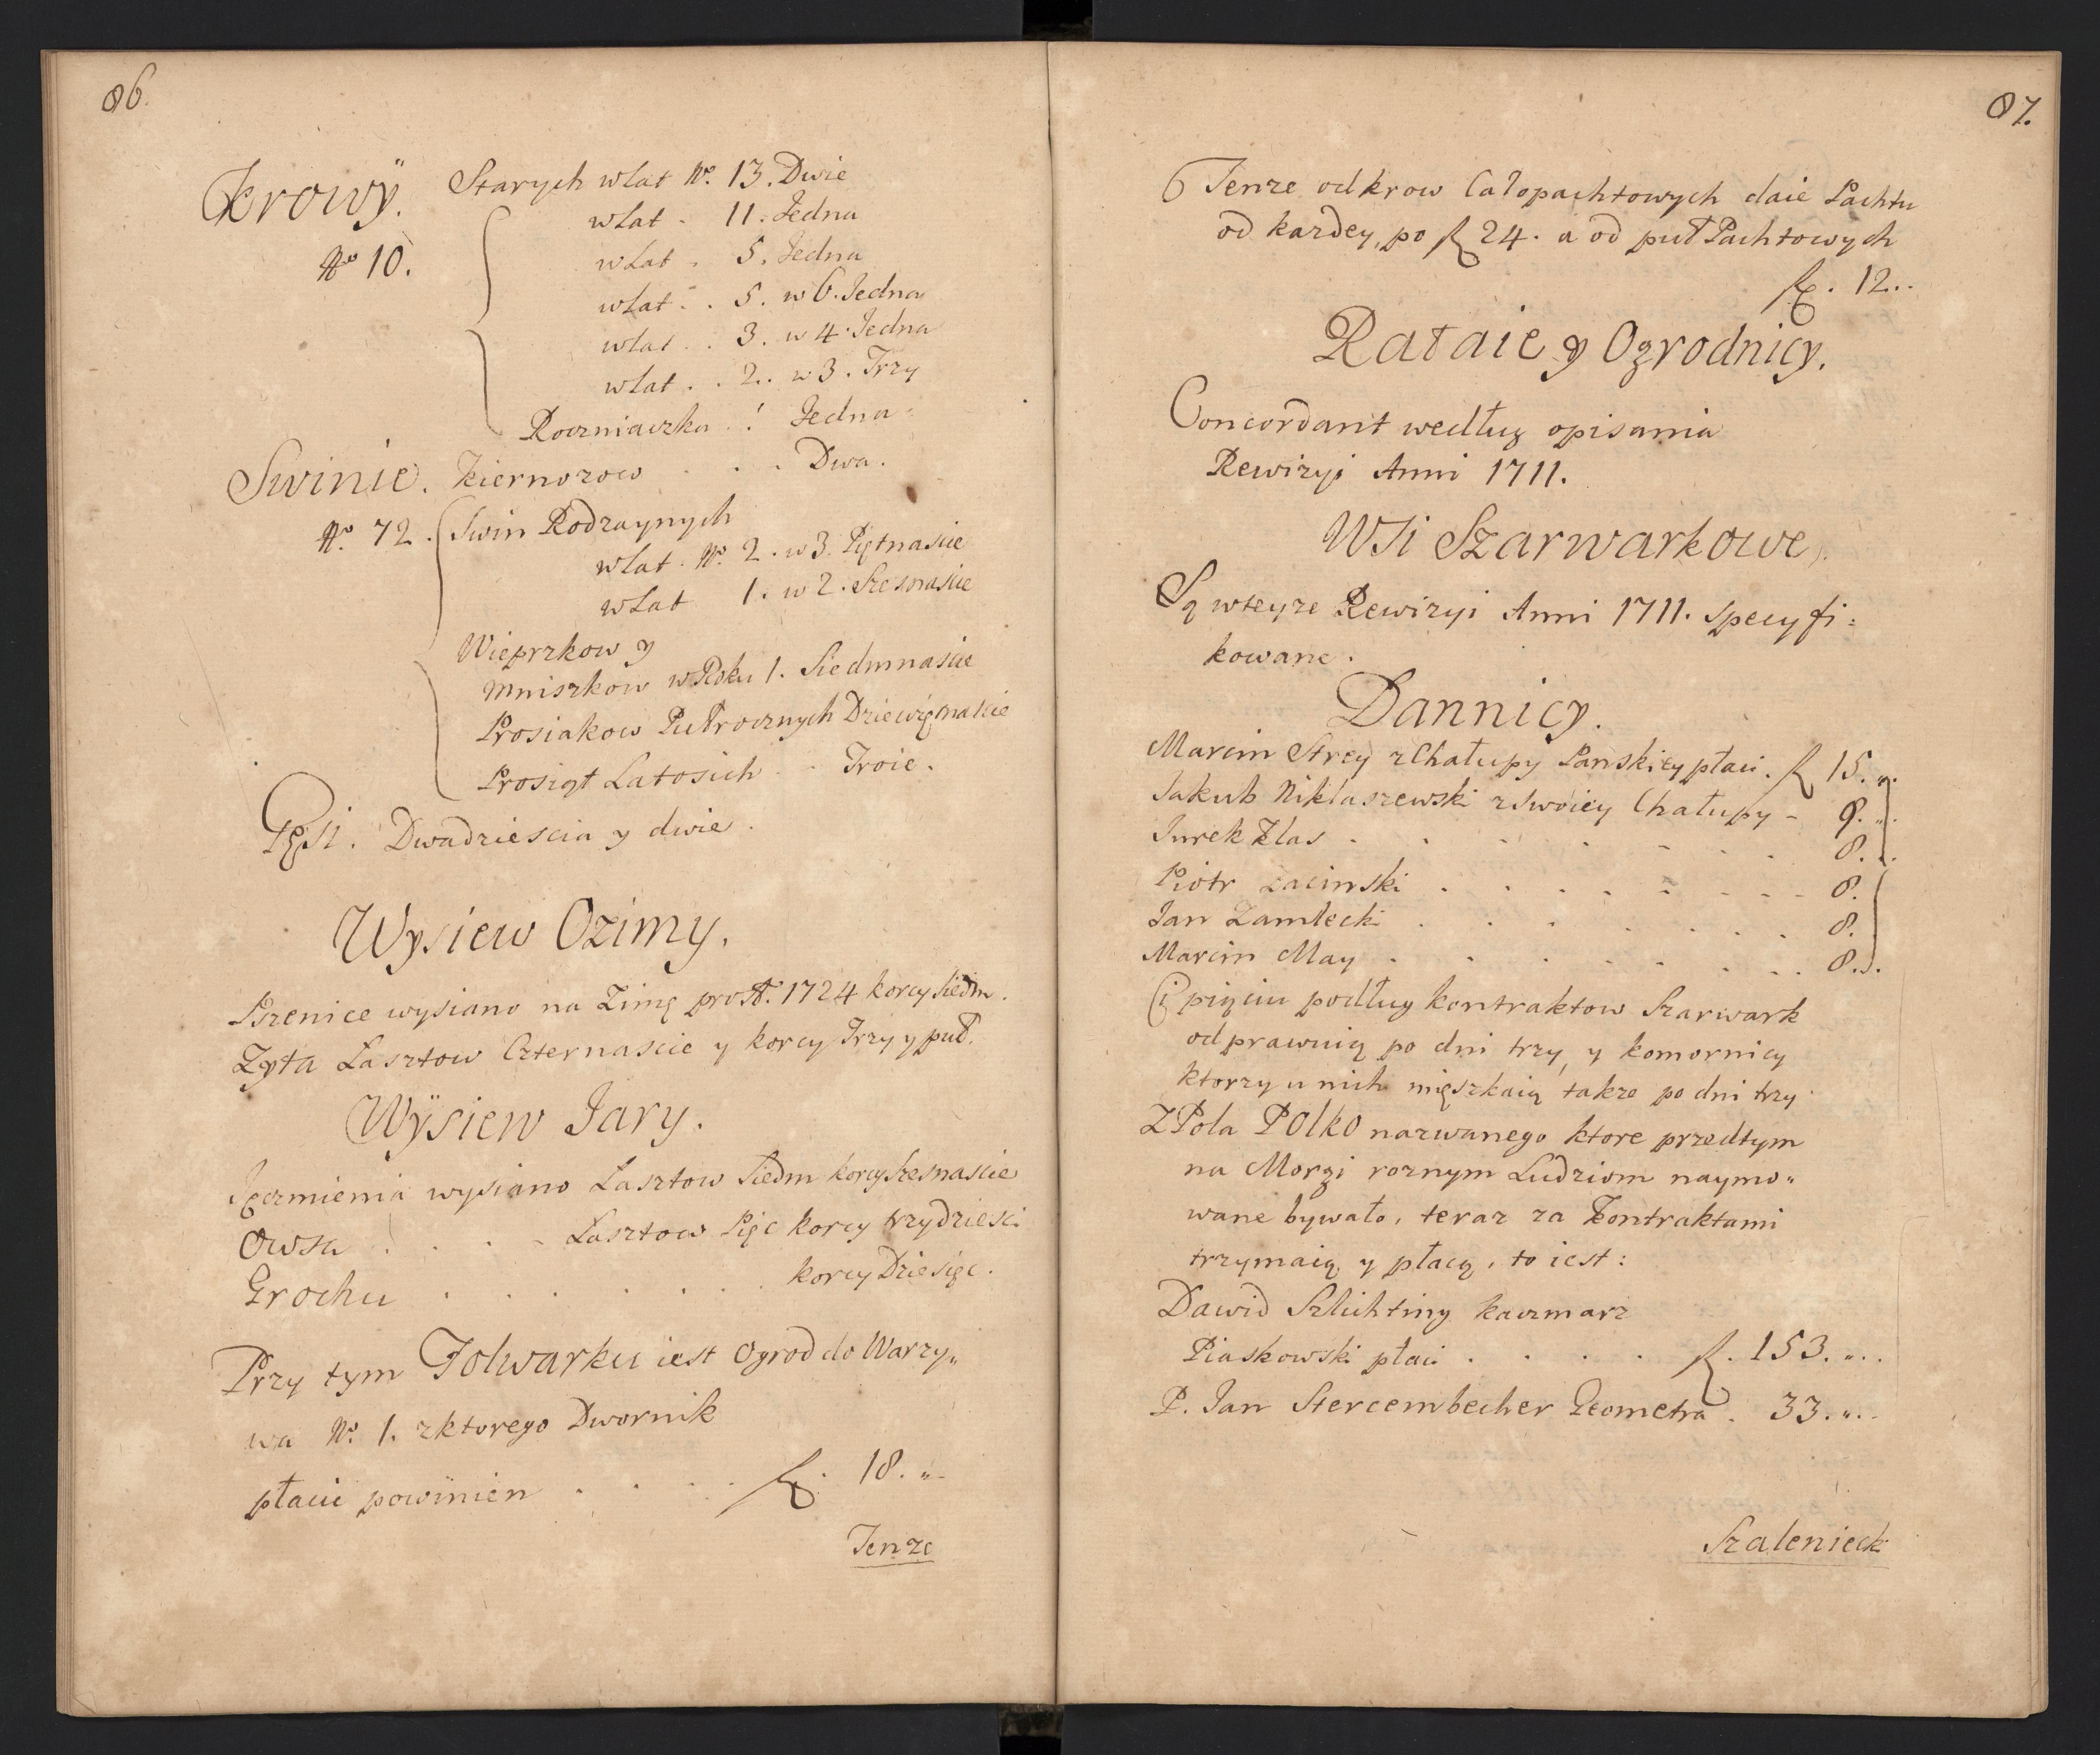 86.
Krowÿ. Starych w lat No. 13. Dwie
w lat . 11. Jedna
No 10.
w Lat . 5. Jedna
w Lat . . 5. w 6. Jedna
w lat . . 3. w 4. Jedna
w Lat . . 2. w 3. Trzy
Roczniaczka . 1 Jedna
Swinie. Kiernozow . . . Dwa.
No. 72. Swin Rodzaynych
w Lat. No. 2. w 3. Piętnascie
w Lat 1. w 2. Szesnascie
Wieprzkow y
Mniszkow w Roku 1. Siedmnascie
Prosiakow Pułrocznych Dziewiętnascie
Prosiąt Latosich . . Troie.
Gęsi. Dwadziescia y dwie.
Wysiew Ozimy.
Pszenice wysiano na Zimę pro A. 1724 korcy siedm.
Zyta Lasztow Czternascie y korcy Trzy y puł.
Wÿsiew Jary.
Jęczmienia wysiano Lasztow Siedm korcy Szesnascie
Owsa . . . - Lasztow Pięc korcy trzydziesci
Grochu . . . . . . korcy Dziesięc.
Przy tym Folwarku iest Ogrod do Warzy„
wa No. 1. z ktorego Dwornik
płacic powinien . . . . fl. 18. „.
Tenze
87.
Tenze od krow Całopachtowych daie Pachtu
od kazdey, po fl 24. a od puł Pachtowych
fl. 12..
Rataie y Ogrodnicy.
Concordant według opisania
Rewizyi Anni 1711.
WSi Szarwarkowe.
Są w teyze Rewizyi Anni 1711. specyfi:
kowane.
Dannicy.
Marcin Strey z Chałupy Panskiey płaci. fl 15. „.
Jakub Niklaszewski z Swoiey Chałupy - 9. „.
Jurek Klas . . . . - - . 8. „.
Piotr Lacinski . . . . - - - 8.
Jan Zamłecki . . . . . . . 8.
Marcin May . . . . . . . 8. „.
Ci pięciu podług kontraktow Szarwark
odprawuią po dni trzy, y komornicy
ktorzy u nich mięszkaią takze po dni trzy
Z Pola POlko nazwanego ktore przedtym
na Morgi roznym Ludziom naymo„
wane bywało, teraz za Kontraktami
trzymaią y płacą, to iest:
Dawid Szlichting kaczmarz
Piaskowski płaci . . . . fl. 153. „..
P. Jan Stercembecher Geometra . 33. „..
Szalenieck